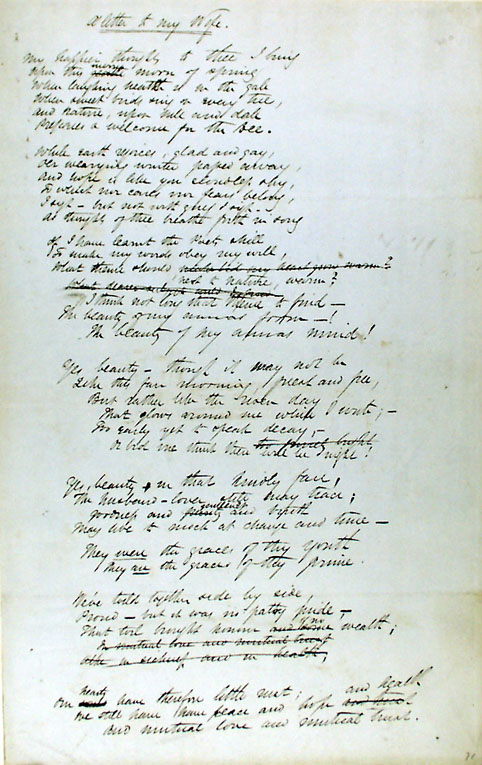 A letter to my Wife.
My happier thoughts to thee I bring
Upon this morn of spring
When laughing health is in the gale
When sweet birds sing on every tree,
and Nature, upon hill and dale
Prepares a welcome for the Bee.
While earth rejoices, glad and gay,
Her wearying winter passed away,
and hope is like yon cloudless sky,
To which nor cares nor fears belong,
I sigh - but not with grief I sigh -
as thoughts of thee breathe forth in song
If I have learnt the Poet's skill
To make my words obey my will,
What theme should
next to nature, warm?
I think not love that theme to find -
The beauty of my form - !
The beauty of my mind!
Yes beauty - though it may not be
Like this fair morning, fresh and free,
But rather like the day
That glows around me while I write; -
Too early yet to speak decay, -
Or bid me think there will be night!
Yes, beauty, in that kindly face,
The husband-lover still may trace;
goodness and and
May live to mock at change and time -
They were the graces of thy youth
They are the graces of thy prime.
We've toiled together side by side,
Proud - but it was no paltry pride -
That toil brought honour wealth;
In mutual love and mutual trust
in sickness and in health,
Our hearts have therefore little rust;
We still have have peace and hope and health
and mutual love and mutual trust.